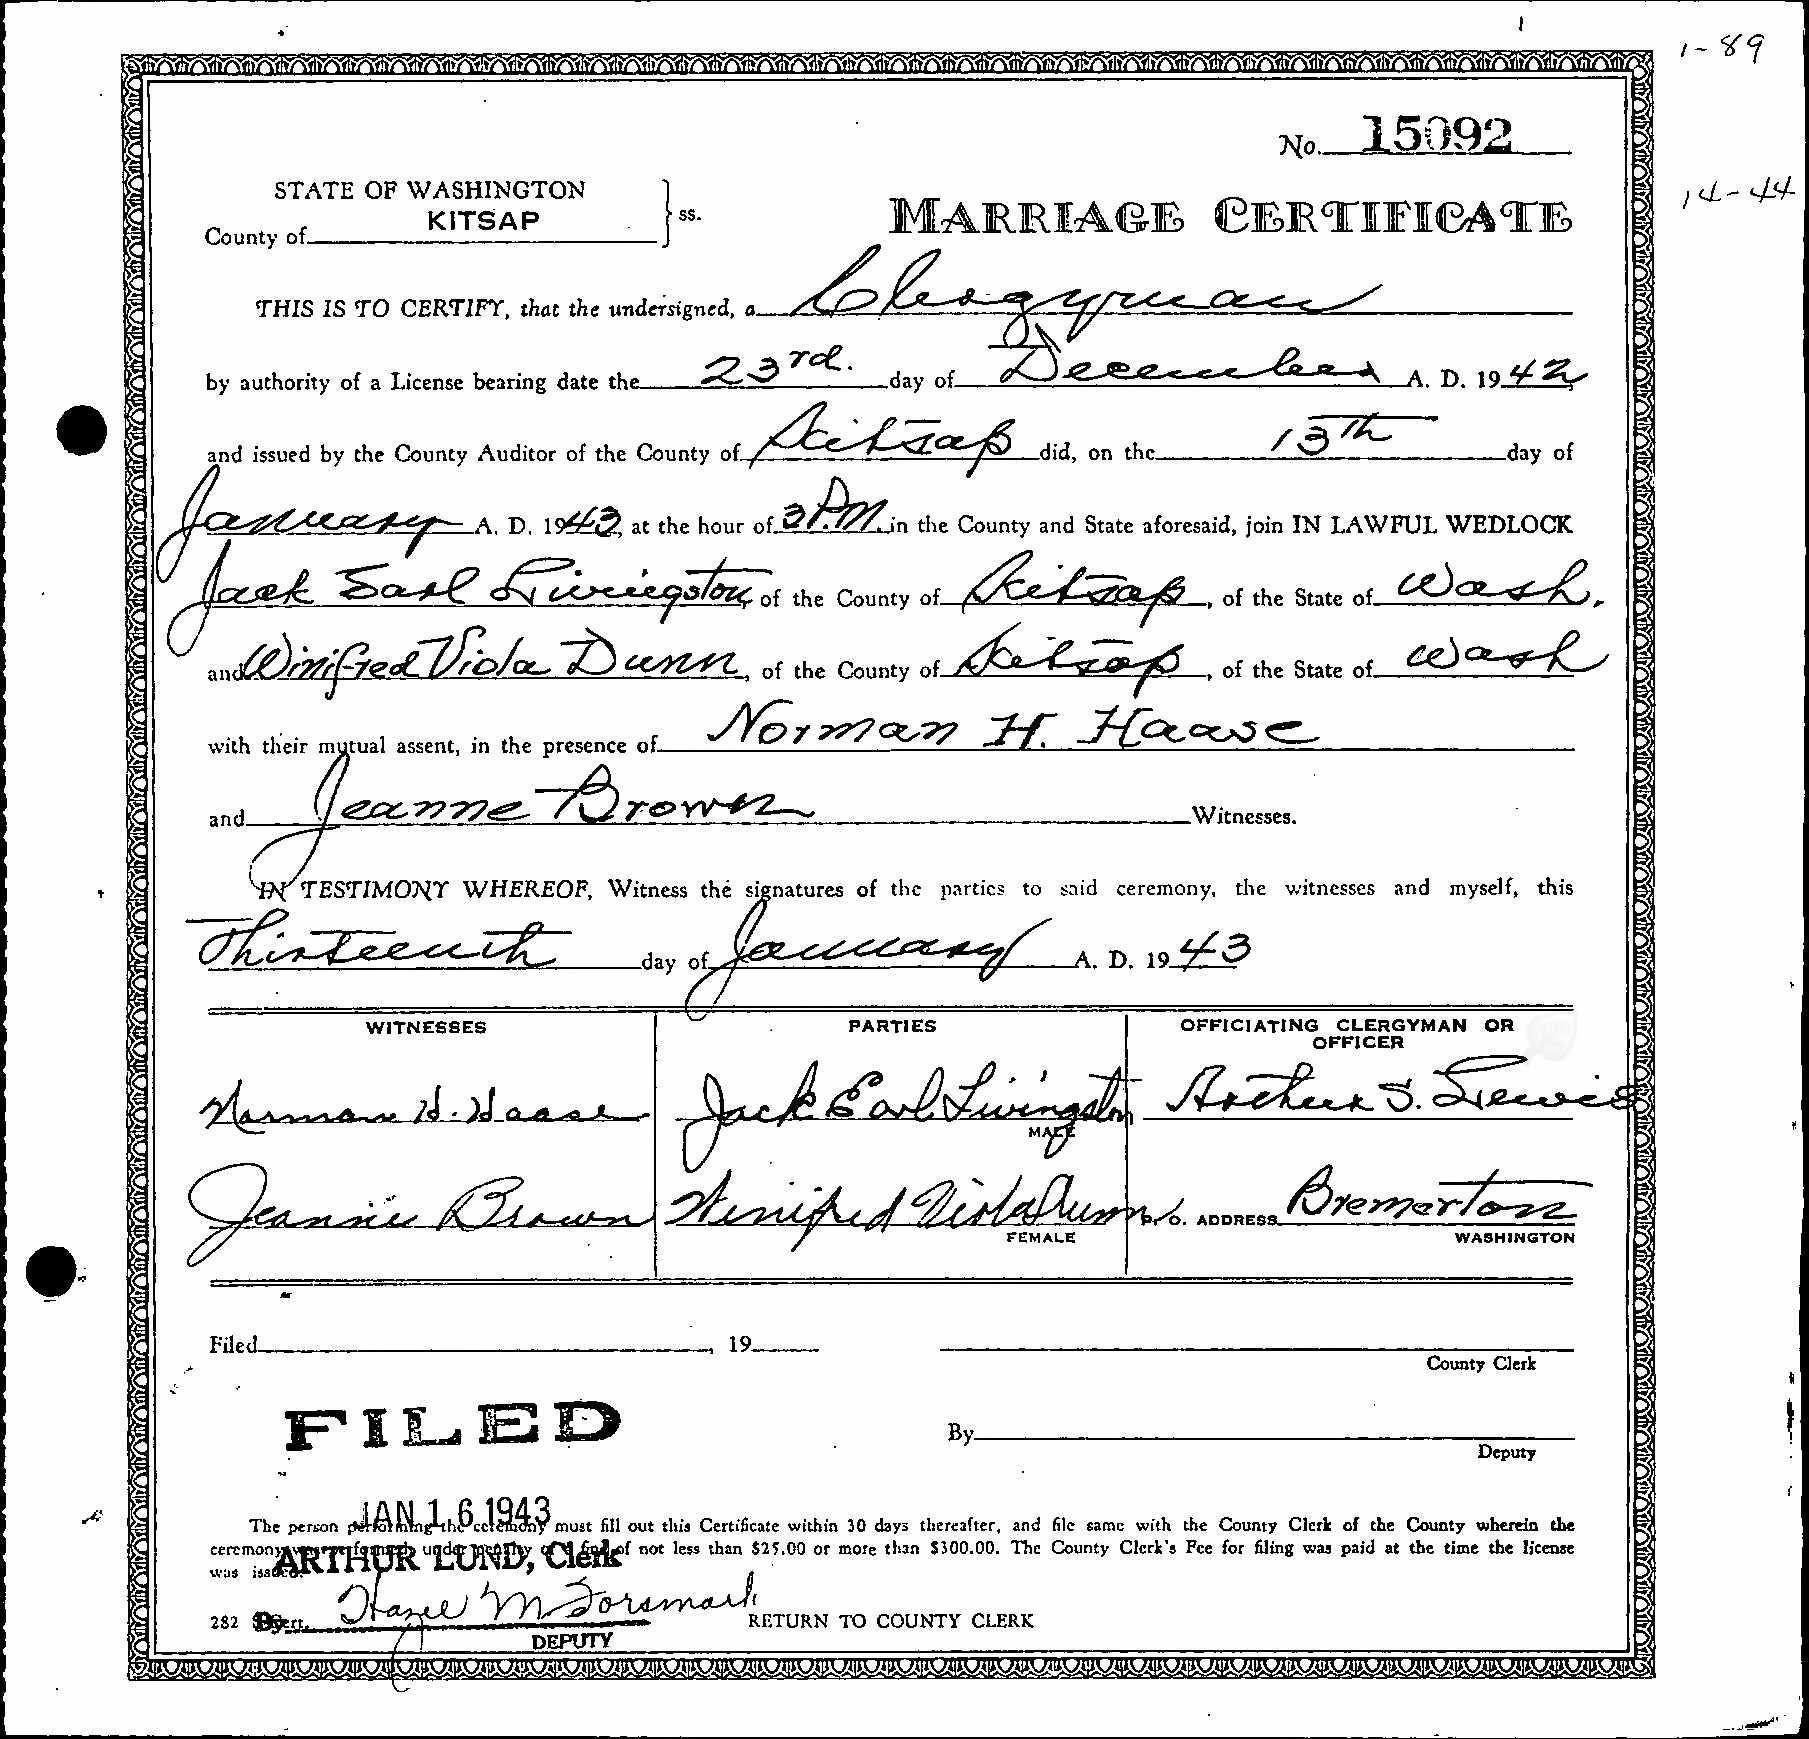 1-89
No. 15092
14-44
STATE OF WASHINGTON
County of KITSAP } ss.
MARRIAGE CERTIFICATE
THIS IS TO CERTIFY, that the undersigned, a Clergyman
by authority of a License bearing date the 23rd. day of December A. D. 1942
and issued by the County Auditor of the County of Kitsap did, on the 13th day of
January A. D. 1943, at the hour of 3 P.M. in the County and State aforesaid, join IN LAWFUL WEDLOCK
Jack Earl Livingston of the County of Kitsap, of the State of Wash.
and Winifred Viola Dunn, of the County of Kitsap, of the State of Wash
with their mutual assent, in the presence of Norman H. Haase
and Jeanne Brown Witnesses.
IN TESTIMONY WHEREOF, Witness the signatures of the parties to said ceremony, the witnesses and myself, this
Thirteenth day of January A. D. 1943
WITNESSES
PARTIES
OFFICIATING CLERGYMAN OR
OFFICER
Norman H. Haase
Jack Earl Livingston
Arthur S. Lewis
MALE
Jeannie Brown
Winifred Viola Dunn
P. O. ADDRESS Bremerton
FEMALE
WASHINGTON
Filed , 19
County Clerk
FILED
By
Deputy
JAN 16 1943
The person performing the ceremony must fill out this Certificate within 30 days thereafter, and file same with the County Clerk of the County wherein the
ceremony was performed, under penalty of a fine of not less than $25.00 or more than $300.00. The County Clerk's Fee for filing was paid at the time the license
ARTHUR LUND, Clerk
was issued.
282
By Hazel M Forsmark
RETURN TO COUNTY CLERK
DEPUTY